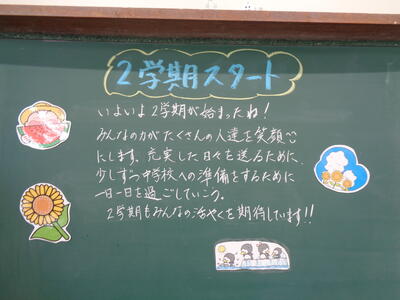 2学期スタート
いよいよ2学期が始まったね!
みんなの力がたくさんの人達を笑顔
にします。充実した日々を送るために、
少しずつ中学校への準備をするために
一日一日を過ごしていこう。
2学期もみんなの活やくを期待しています!!